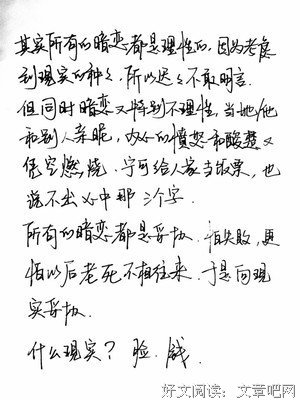 其实所有的暗恋都是理性的.因为考虑
到现实的种々.所以迟々不敢明言.
但同时暗恋又特别不理性.当她/他
和别人亲昵.内心的愤怒和酸楚又
凭空燃烧.宁可给人家当饭票,也
说不出心中那三个字.
所有的暗恋都是妥协.怕失败,更
怕以后老死不相往来.于是向现
实妥协.
什么现实?脸.钱.
好文阅读:文章吧网